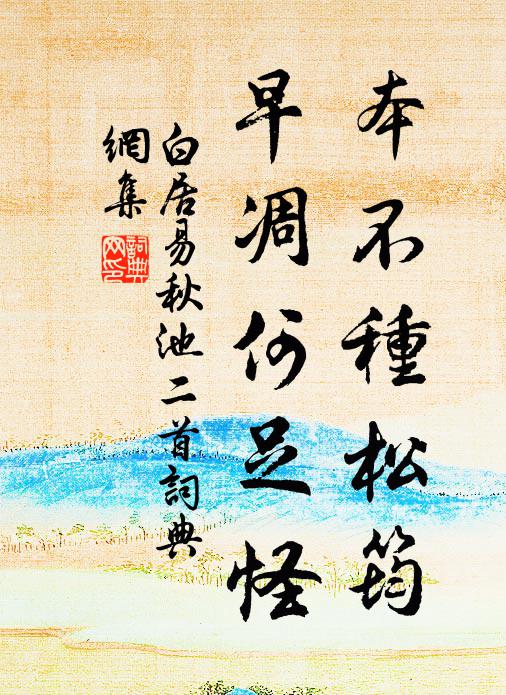 本不種松筠
早凋何足怪
白居易秋池二首詞典
網集
詞典网印